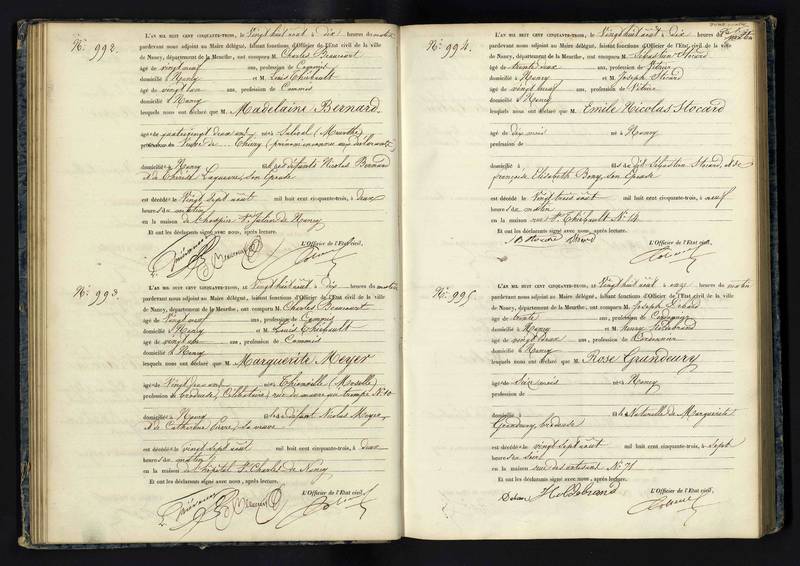 No. 992.
L'AN MIL HUIT CENT CINQUANTE-TROIS, le Vingt huit août à dix heures du matin
pardevant nous adjoint au Maire délégué, faisant fonctions d'Officier de l'Etat civil de la ville
de Nancy, département de la Meurthe, ont comparu M. Charles Beaucourt
âgé de vingt neuf ans, profession de Commis
domicilié à Nancy et M. Louis Thiébault
âgé de vingt ans, profession de Commis
domicilié à Nancy
lesquels nous ont déclaré que M. Madelaine Bernard.
âgée de quatrevingt deux ans née à (Meurthe)
Veuve de Thiéry (prénom inconnu aux déclarants)
domiciliée à Nancy fille de défunts Nicolas Bernard
& de son Epouse
est décédée le Vingt sept août mil huit cent cinquante-trois, à deux
heures du matin
en la maison de l'hospice St. Julien de Nancy
Et ont les déclarants signé avec nous, après lecture.
L'Officier de l'Etat civil,
No. 993.
L'AN MIL HUIT CENT CINQUANTE-TROIS, le Vingt huit août à dix heures du matin
pardevant nous adjoint au Maire délégué, faisant fonctions d'Officier de l'Etat civil de la ville
de Nancy, département de la Meurthe, ont comparu M. Charles Beaucourt
âgé de Vingt neuf ans, profession de Commis
domicilié à Nancy et M. Louis Thiébault
âgé de vingt ans, profession de Commis
domicilié à Nancy
lesquels nous ont déclaré que M. Marguerite Meyer
âgée de Vingt ans née à Thionville (Moselle)
profession de brodeuse, Célibataire, rue du No. 10
domiciliée à Nancy fille de défunt Nicolas Meyer
& de Catherine sa veuve
est décédée le vingt sept août mil huit cent cinquante-trois, à deux
heures du matin
en la maison de l'hôpital St. Charles de Nancy
Et ont les déclarants signé avec nous, après lecture.
L'Officier de l'Etat civil,
No. 994.
L'AN MIL HUIT CENT CINQUANTE-TROIS, le Vingt huit août à dix heures du matin
pardevant nous adjoint au Maire délégué, faisant fonctions d'Officier de l'Etat civil de la ville
de Nancy, département de la Meurthe, ont comparu M. Sébastien Stocard
âgé de trente deux ans, profession de Vitrier
domicilié à Nancy et M. Joseph Stocard
âgé de vingt neuf ans, profession de Vitrier
domicilié à Nancy
lesquels nous ont déclaré que M. Emile Nicolas Stocard
âgé de dix mois né à Nancy
profession de
domicilié à fils de Sébastien Stocard, & de
françoise Elisabeth Bony, son Epouse
est décédé le Vingt trois août mil huit cent cinquante-trois, à neuf
heures du matin
en la maison rue St. Thiébault No. 14
Et ont les déclarants signé avec nous, après lecture.
L'Officier de l'Etat civil,
No. 995
L'AN MIL HUIT CENT CINQUANTE-TROIS, le Vingt huit août à onze heures du matin
pardevant nous adjoint au Maire délégué, faisant fonctions d'Officier de l'Etat civil de la ville
de Nancy, département de la Meurthe, ont comparu M. Joseph
âgé de trente ans, profession de Cordonnier
domicilié à Nancy et M. Henry Holdebrand
âgé de vingt deux ans, profession de Cordonnier
domicilié à Nancy
lesquels nous ont déclaré que M. Rose Grandeury
âgée de Seize mois née à Nancy
profession de
domicilié à fille Naturelle de Marguerite
Grandeury, brodeuse
est décédée le vingt sept août mil huit cent cinquante-trois, à sept
heures du soir
en la maison rue des artisans No. 71
Et ont les déclarants signé avec nous, après lecture.
Holdebrand
L'Officier de l'Etat civil,